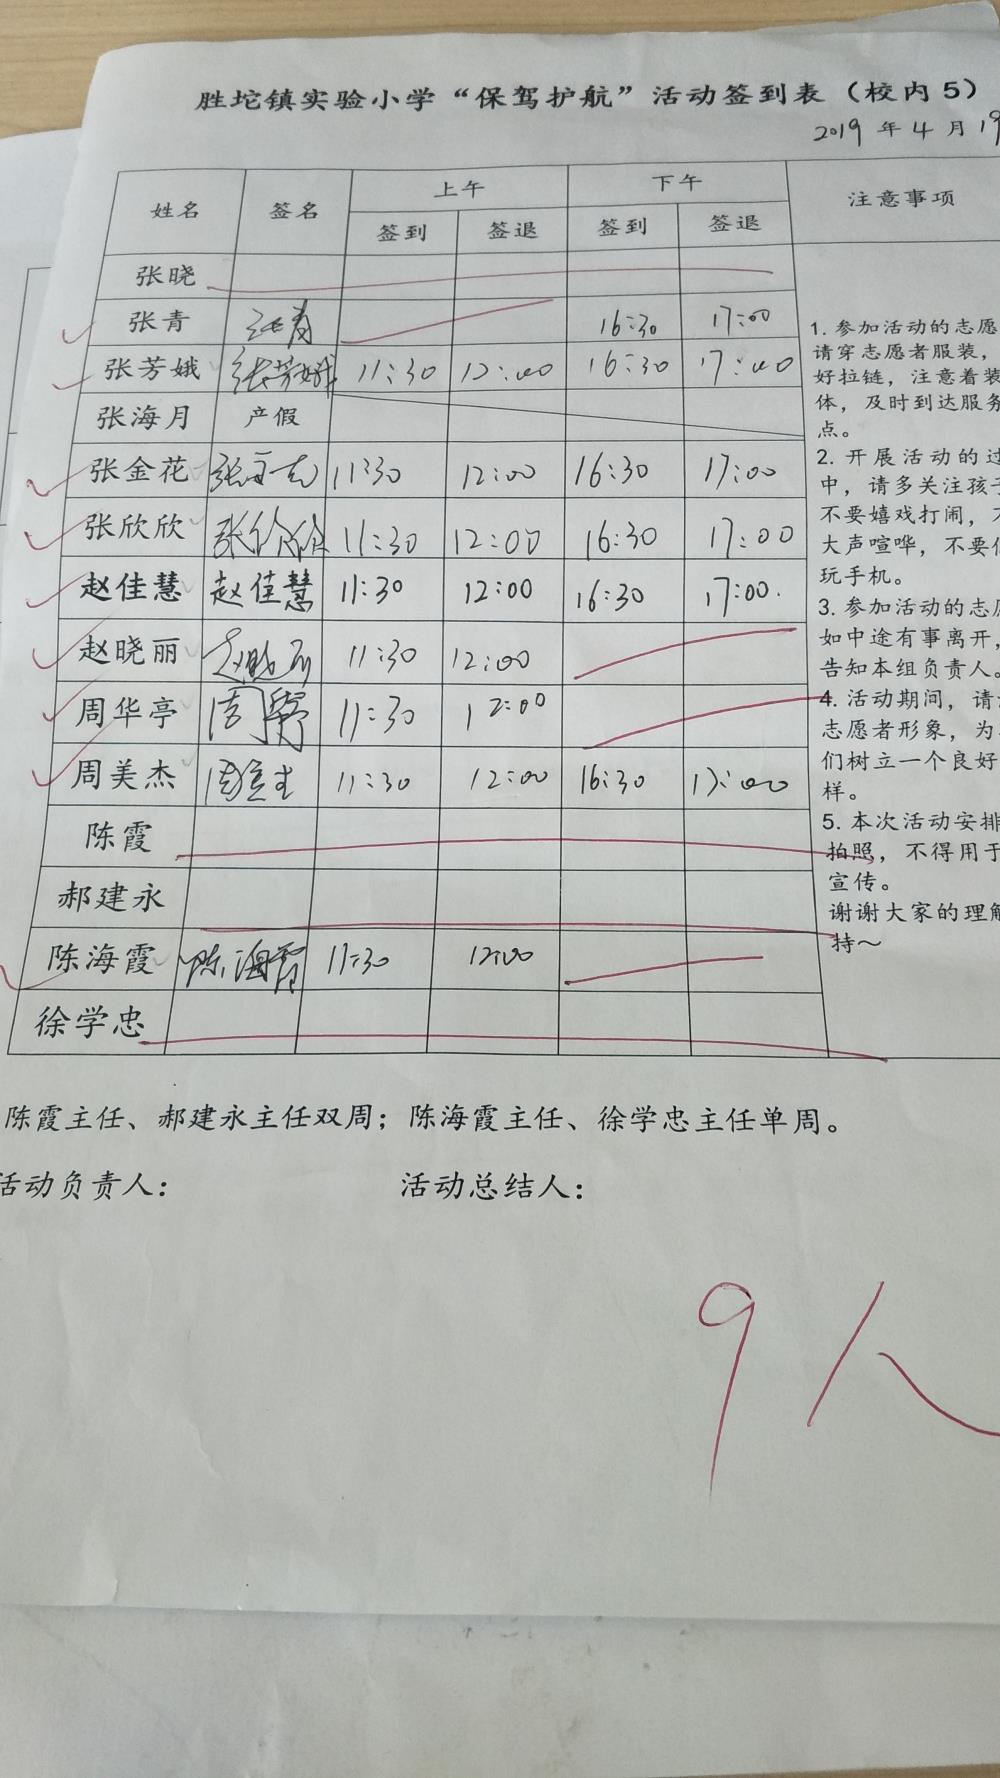 胜坨镇实验小学“保驾护航”活动签到表（校内5）
2019 年 4 月 19
姓名 签名 上午 下午 注意事项
签到 签退 签到 签退
张晓
张青 张青 16:30 17:00
张芳娥 张芳娥 11:30 12:00 16:30 17:00
张海月 产假
张金花 11:30 12:00 16:30 17:00
张欣欣 张欣欣 11:30 12:00 16:30 17:00
赵佳慧 赵佳慧 11:30 12:00 16:30 17:00.
赵晓丽 赵晓丽 11:30 12:00
周华亭 11:30 12:00
周美杰 11:30 12:00 16:30 17:00
陈霞
郝建永
陈海霞 陈海霞 11:30 12:00
徐学忠
1. 参加活动的志愿
请穿志愿者服装，
好拉链，注意着装
体，及时到达服务
点。
2. 开展活动的过
中，请多关注孩子
不要嬉戏打闹，不
大声喧哗，不要低
玩手机。
3. 参加活动的志愿
如中途有事离开，
告知本组负责人。
4. 活动期间，请
志愿者形象，为
们树立一个良好
样。
5. 本次活动安排
拍照，不得用于
宣传。
谢谢大家的理解
持～
陈霞主任、郝建永主任双周；陈海霞主任、徐学忠主任单周。
活动负责人： 活动总结人：
9人